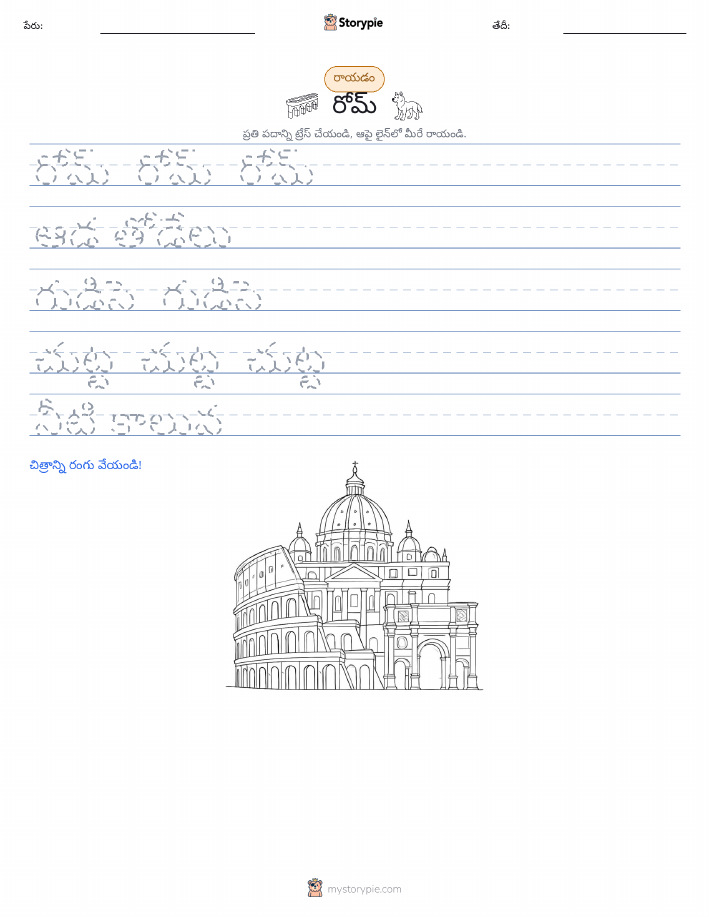 పేరు:
Storypie
తేదీ:
రాయడం
రోమ్
ప్రతి పదాన్ని ట్రేస్ చేయండి, ఆపై లైన్‌లో మీరే రాయండి.
రోమ్ రోమ్ రోమ్
ఆడ తోడేలు
గుడిసె గుడిసె
చుట్ట చుట్ట చుట్ట
నీటి కాలువ
చిత్రాన్ని రంగు వేయండి!
mystorypie.com